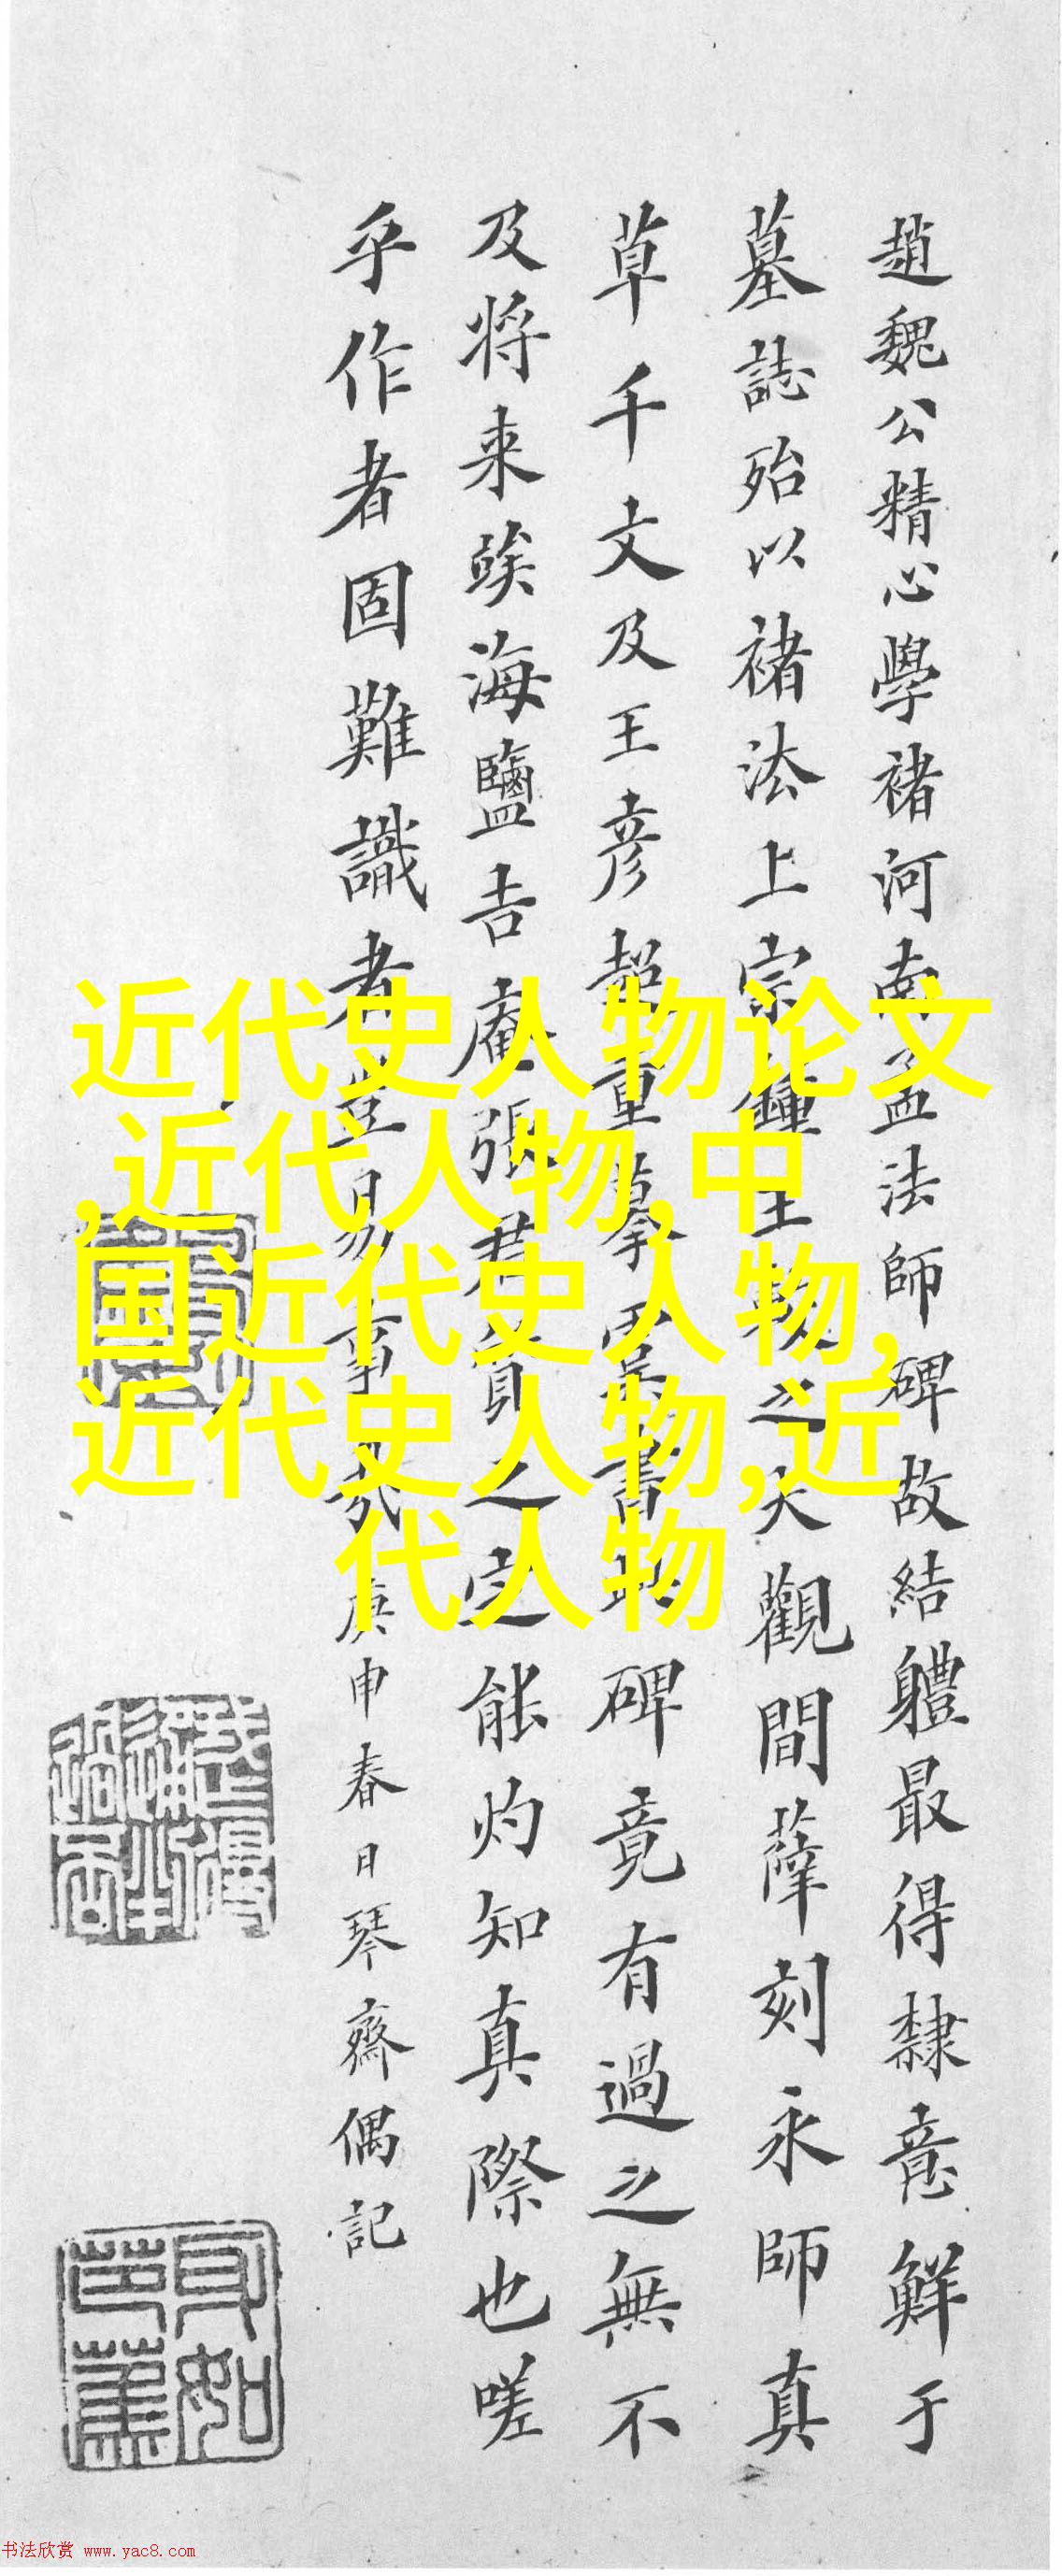 趙魏公精心學褚河南孟法師碑故結軆最得隸意鮮于
墓誌殆以褚法上宗鍾王鞔之大觀間薛刻永師真
草千文及王彦超重摹碑竟有過之無不
及将来竢海鹽吉庵張君質之定能灼知真際也嗟
乎作者固難識者豈易事哉庚申春日琴齋偶記
近代史人物论文
,近代人物,中
国近代史人物,
近代史人物,近
代人物
书法欣赏 www.yac8.com